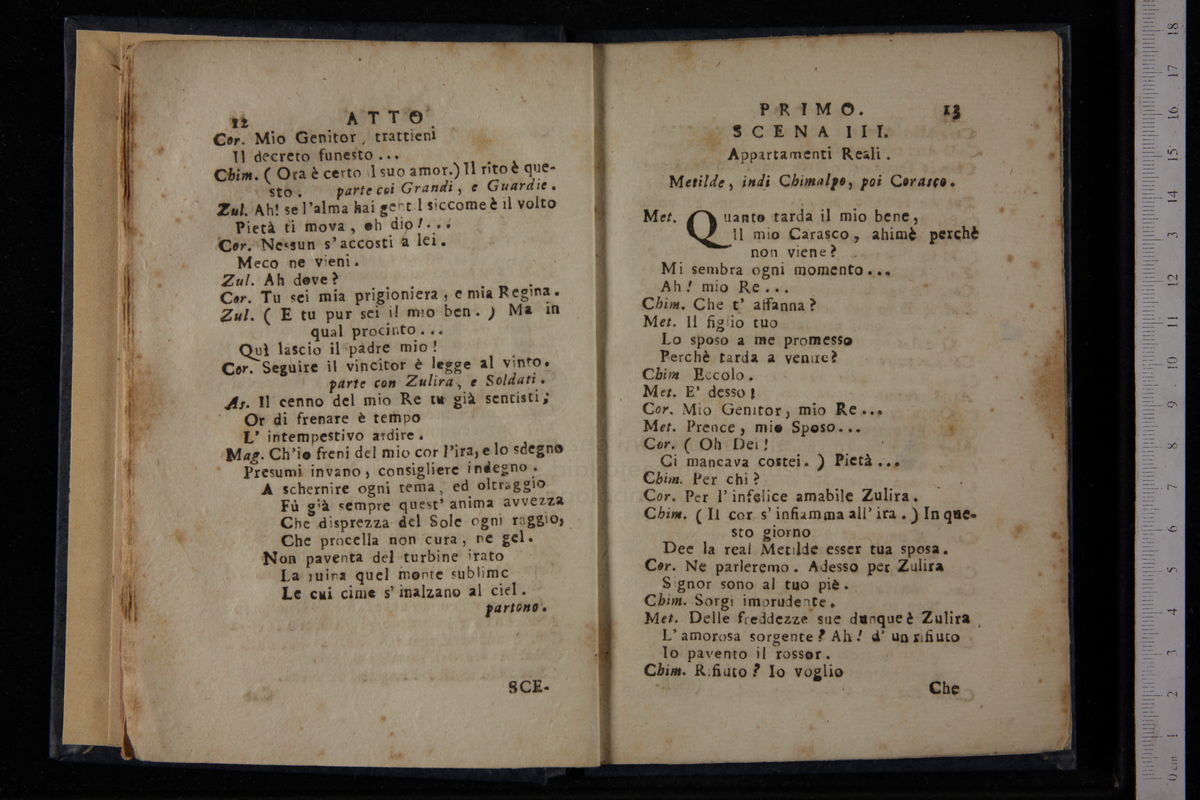 12 ATTO
Cor. Mio Genitor, trattieni
Il decreto funesto...
Chim. ( Ora è certo il suo amor.) Il rito è que-
sto. parte coi Grandi, e Guardie.
Zul. Ah! se l'alma hai gentil siccome è il volto
Pietà ti mova, oh dio!...
Cor. Nessun s'accosti a lei.
Meco ne vieni.
Zul. Ah dove?
Cor. Tu sei mia prigioniera, e mia Regina.
Zul. ( E tu pur sei il mio ben. ) Ma in
qual procinto...
Quì lascio il padre mio!
Cor. Seguire il vincitor è legge al vinto.
parte con Zulira, e Soldati.
As. Il cenno del mio Re tu già sentisti;
Or di frenare è tempo
L' intempestivo ardire.
Mag. Ch'io freni del mio cor l'ira, e lo sdegno
Presumi invano, consigliere indegno.
A schernire ogni tema, ed oltraggio
Fù già sempre quest' anima avvezza
Che disprezza del Sole ogni raggio,
Che procella non cura, ne gel.
Non paventa del turbine irato
La ruina quel monte sublime
Le cui cime s' inalzano al ciel.
partono.
SCE-
PRIMO. 13
SCENA III.
Appartamenti Reali.
Metilde, indi Chimalpo, poi Corasco.
Met. Quanto tarda il mio bene,
Il mio Carasco, ahimè perchè
non viene?
Mi sembra ogni momento...
Ah! mio Re...
Chim. Che t' affanna?
Met. Il figlio tuo
Lo sposo a me promesso
Perchè tarda a venire?
Chim Eccolo.
Met. E' desso!
Cor. Mio Genitor, mio Re...
Met. Prence, mio Sposo...
Cor. ( Oh Dei!
Ci mancava costei. ) Pietà...
Chim. Per chi?
Cor. Per l' infelice amabile Zulira.
Chim. ( Il cor s' infiamma all' ira. ) In que-
sto giorno
Dee la real Metilde esser tua sposa.
Cor. Ne parleremo. Adesso per Zulira
Signor sono al tuo piè.
Chim. Sorgi imprudente.
Met. Delle freddezze sue dunque è Zulira
L' amorosa sorgente? Ah! d' un rifiuto
Io pavento il rossor.
Chim. Rifiuto? Io voglio
Che